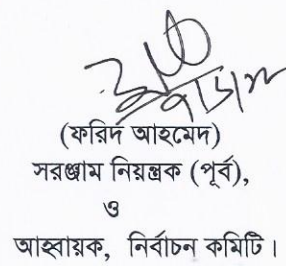 (ফরিদ আহমেদ)
সরঞ্জাম নিয়ন্ত্রক (পূর্ব),
ও
আহ্বায়ক, নির্বাচন কমিটি।